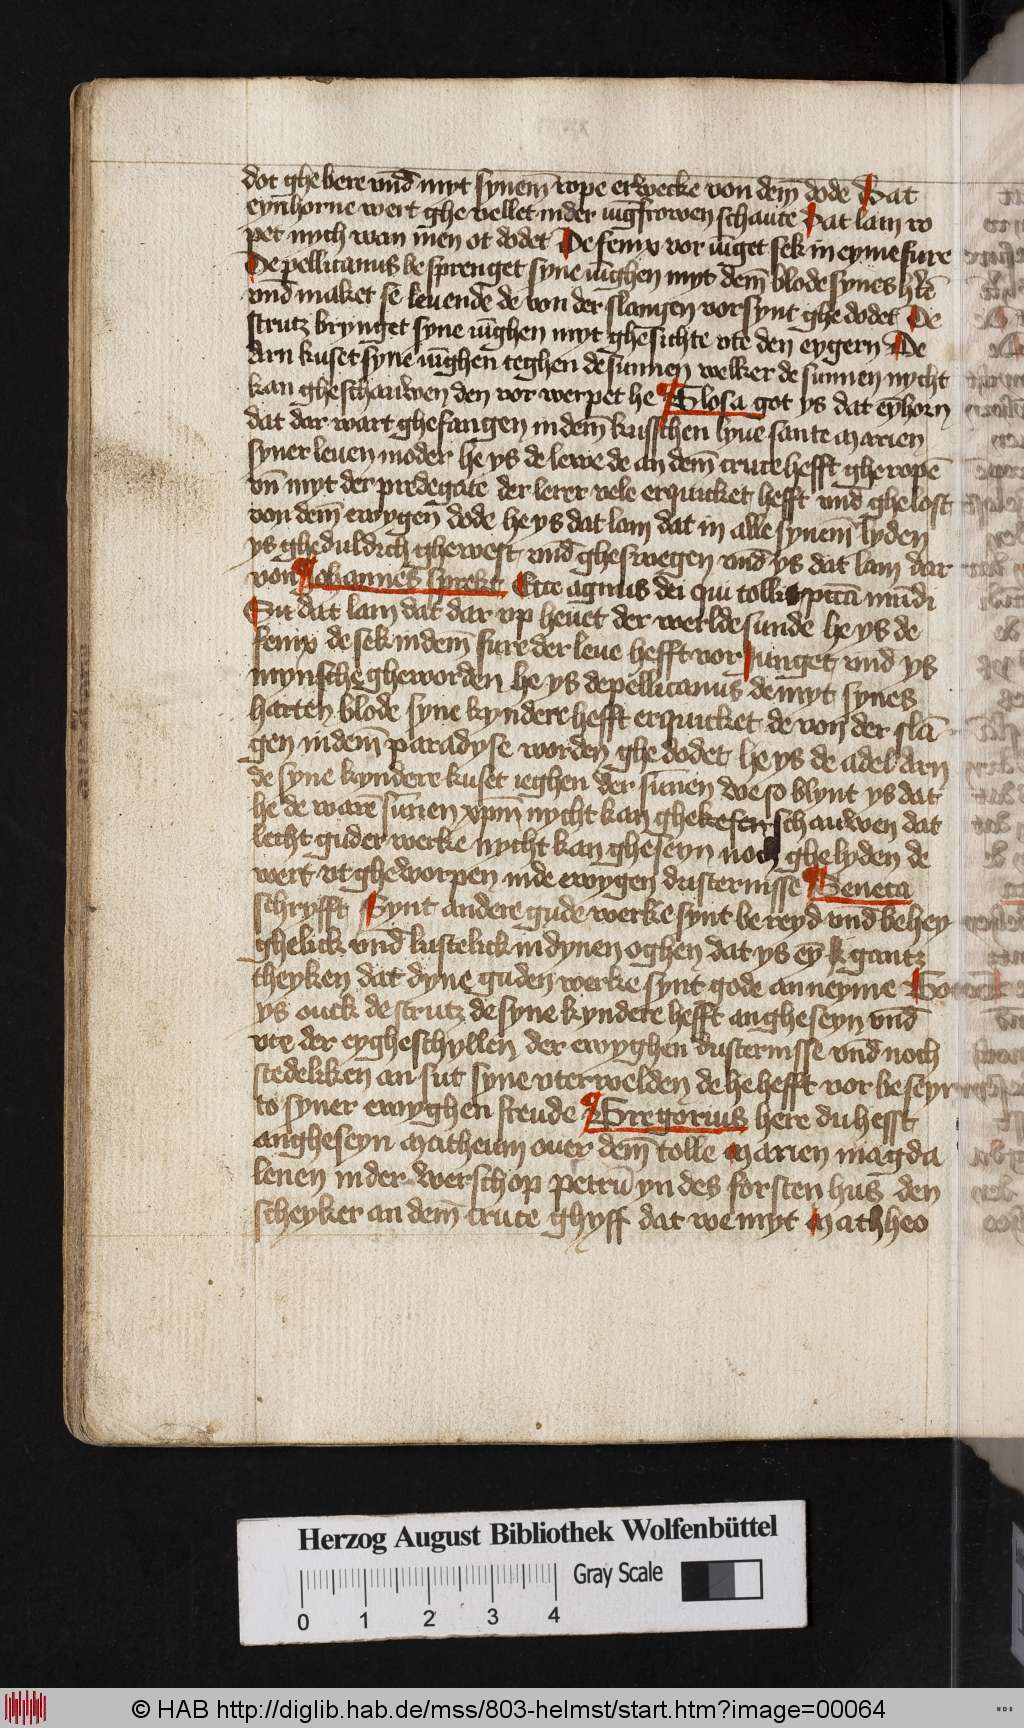 dot ghebere vnd̄ myt synem̄ rope erwecke von dem̄ dode Dat
eyn̄horne wert ghe vellet in der iūgfrowen schaute Dat lam ro
pet nych wan men ot dodet De fenix vor iūget sek in eyme fure
De pellicanus be sprenget syne iūghen myt dem̄ blode synes h̄te
vnd̄ maket se leuende de von der slangen vor synt ghe dodet De
strutz brynget syne iūghen myt ghesichte vte den eygern De
arn kuset syne iūghen teghen de sunnen welker de sunnen nycht
kan gheschauwen den vor werpet he Glosa got ys dat eyhorn
dat dar wart ghefangen in dem̄ kusschen lyue sante marien
syner leuen moder he ys de lewe de an dem̄ cruce hefft gheropē
vn̄ myt der predegate der lerer vele erquicket hefft vnd̄ ghelost
von dem̄ ewygen dode he ys dat lam dat in alle synem̄ lyden
ys gheduldich ghewest vnd̄ gheswegen vnd ys dat lam dar
von Johannes sprekt Ecce agnus dei qui tollit pctā mūdi
Su dat lam dat dar vp heuet der werlde sunde he ys de
fenix de sek in dem̄ fure der leue hefft vor iunget vnd ys
mynsche gheworden he ys de pellicanus de myt synes
harten blode syne kyndere hefft erquicket de von der slā
gen in dem̄ paradyse worden ghe dodet he ys de adel arn
de syne kyndere kuset ieghen der sūnen we so blynt ys dat
he de ware sūnen xpm̄ nycht kan ghekesen schauwen dat
lecht guder wercke nycht kan gheseyn noch ghelyden de
wert vt gheworpen in de ewygen dusternisse Seneca
schryfft Synt andere gude werke synt be reyd vnd̄ behey
ghelick vnd̄ lustelick in dynen oghen dat ys ey gantz
theyken dat dyne guden werke synt gode anneyme
ys ouck de strutz de syne kyndere hefft angheseyn vnd̄
vte der eygheschyllen der ewyghen dusternisse vnd̄ noch
stedeliken an sut syne vterwelden de he hefft vor beseyn
to syner ewyghen freude Gregorius here du hefft
angheseyn matheum ouer dem̄ tolle marien magda
lenen in der werschop petrū yn des forsten hus den
scheyker an dem̄ cruce ghyff dat we myt mathheo
Herzog August Bibliothek Wolfenbüttel
Gray Scale
0 1 2 3 4
© HAB http://diglib.hab.de/mss/803-helmst/start.htm?image=00064